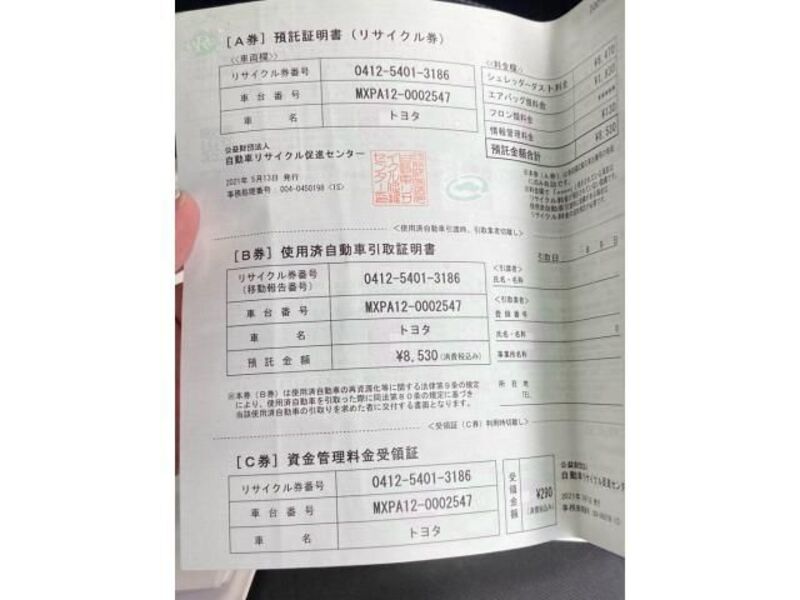 [A券] 預託証明書 (リサイクル券)
<<車両欄>>
リサイクル券番号 0412-5401-3186
車台番号 MXPA12-0002547
車名 トヨタ
<<料金欄>>
シュレッダーダスト料金
エアバッグ類料金
フロン類料金
情報管理料金 ¥130
預託金額合計 ¥8,530
公益財団法人
自動車リサイクル促進センター
2021年 5月13日 発行
事務処理番号:004-0450198 <1S>
<使用済自動車引渡時、引取業者切離し>
[B券] 使用済自動車引取証明書
引取日 年 月 日
リサイクル券番号
(移動報告番号) 0412-5401-3186
車台番号 MXPA12-0002547
車名 トヨタ
預託金額 ¥8,530(消費税込み)
<引渡者>
氏名・名称
<引取業者>
登録番号
氏名・名称
事業所名称
所在地
TEL
※本券(B券)は使用済自動車の再資源化等に関する法律第9条の規定
により、使用済自動車を引取った際に同法第80条の規定に基づき
当該使用済自動車の引取りを求めた者に交付する書面となります。
<受領証(C券)利用時切離し>
[C券] 資金管理料金受領証
リサイクル券番号 0412-5401-3186
車台番号 MXPA12-0002547
車名 トヨタ
受領金額 ¥290
(消費税込み)
公益財団法人
自動車リサイクル促進センタ